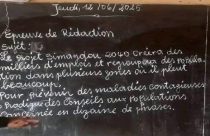 Jeudi, 12/06/2025
Epreuve de Rédaction
Sujet:
Le projet Simandou 2040 créra des
milliers d'emplois et regroupera des popula-
tion dans plusieurs zones où il pleut
beaucoup.
Pour prévenir des maladies contagieuses
prodigue des conseils aux populations
concernée en dizaine de phrases.